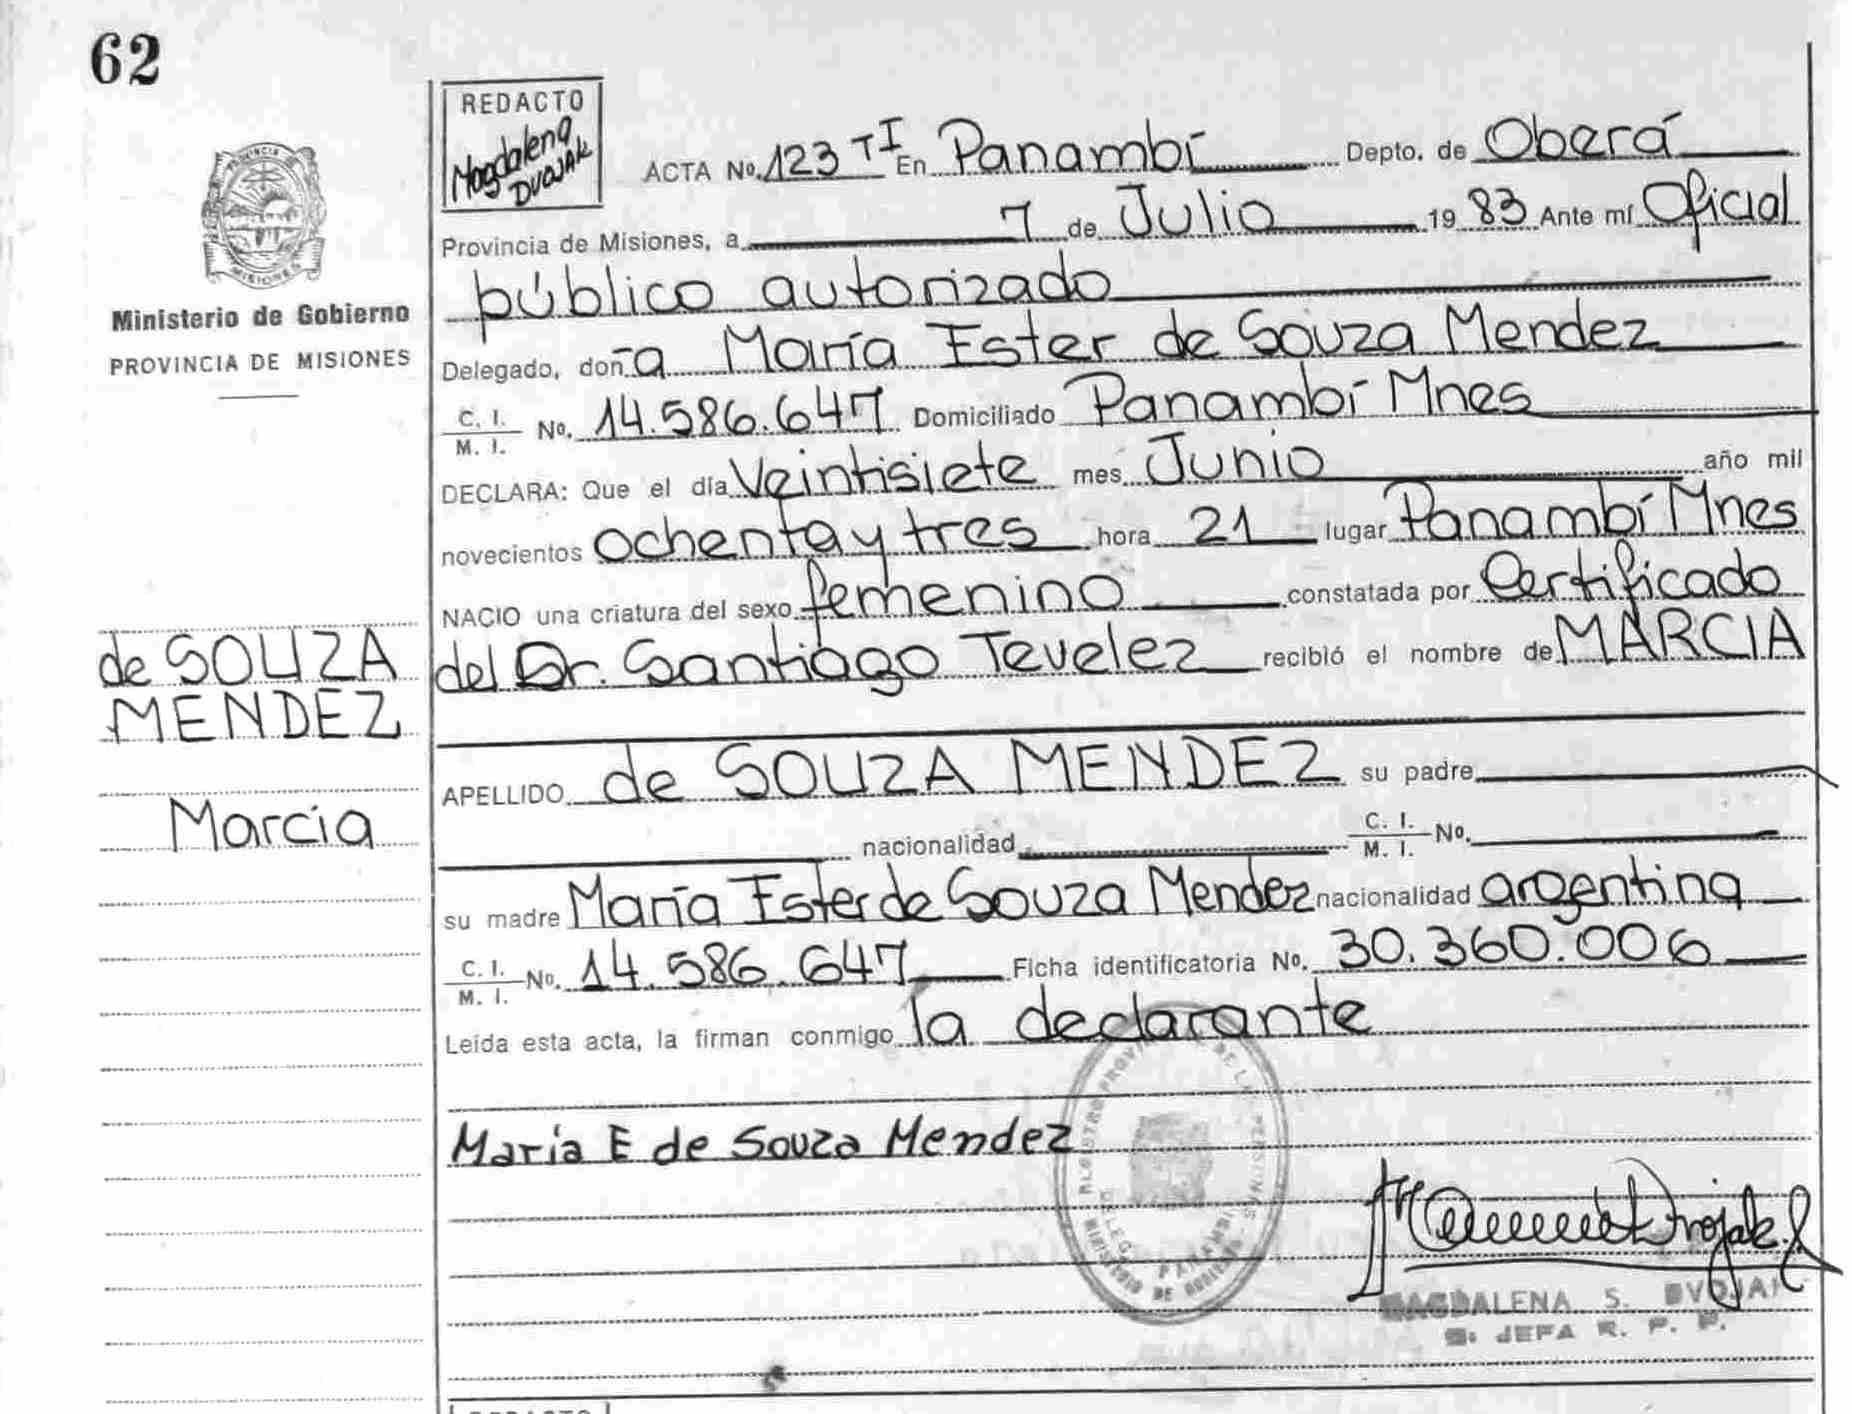 62
REDACTO
Magdalena
DVOJAK
ACTA No. 123 TI En Panambí Depto. de Oberá
Provincia de Misiones, a 7 de Julio 1983 Ante mí Oficial
público autorizado
PROVINCIA DE
MISIONES
Ministerio de Gobierno
PROVINCIA DE MISIONES
Delegado, doña María Ester de Souza Mendez
C. I.
M. I. No. 14.586.647 Domiciliado Panambí Mnes
DECLARA: Que el día Veintisiete mes Junio año mil
novecientos ochenta y tres hora 21 lugar Panambí Mnes
NACIO una criatura del sexo femenino constatada por Certificado
del Dr. Santiago Tevelez recibió el nombre de MARCIA
de SOUZA
MENDEZ
Marcia
APELLIDO de SOUZA MENDEZ su padre
nacionalidad C. I.
M. I. No.
su madre María Ester de Souza Mendez nacionalidad argentina
C. I.
M. I. No. 14.586.647 Ficha identificatoria No. 30.360.006
Leída esta acta, la firman conmigo la declarante
María E de Souza Mendez
MAGDALENA S. DVOJAK
JEFA R. P. P.
REDACTO